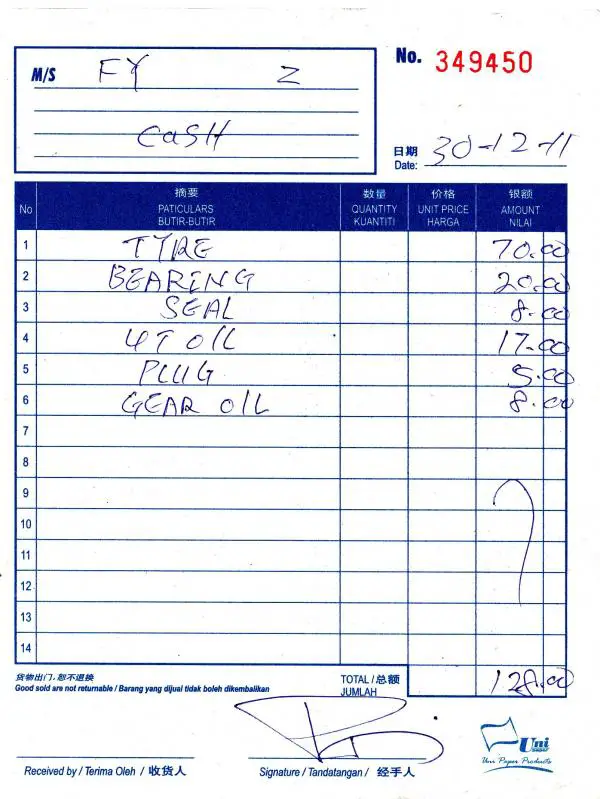 M/S FY Z
No. 349450
CASH
日期
Date: 30-12-11
摘要 数量 价格 银额
No PATICULARS QUANTITY UNIT PRICE AMOUNT
BUTIR-BUTIR KUANTITI HARGA NILAI
1 TYRE 70.00
2 BEARING 20.00
3 SEAL 8.00
4 4T OIL 17.00
5 PLUG 5.00
6 GEAR OIL 8.00
7
8
9
10
11
12
13
14
货物出门,恕不退换 TOTAL / 总额 128.00
Good sold are not returnable / Barang yang dijual tidak boleh dikembalikan JUMLAH
Uni
Uni Paper Products
Received by / Terima Oleh / 收货人 Signature / Tandatangan / 经手人